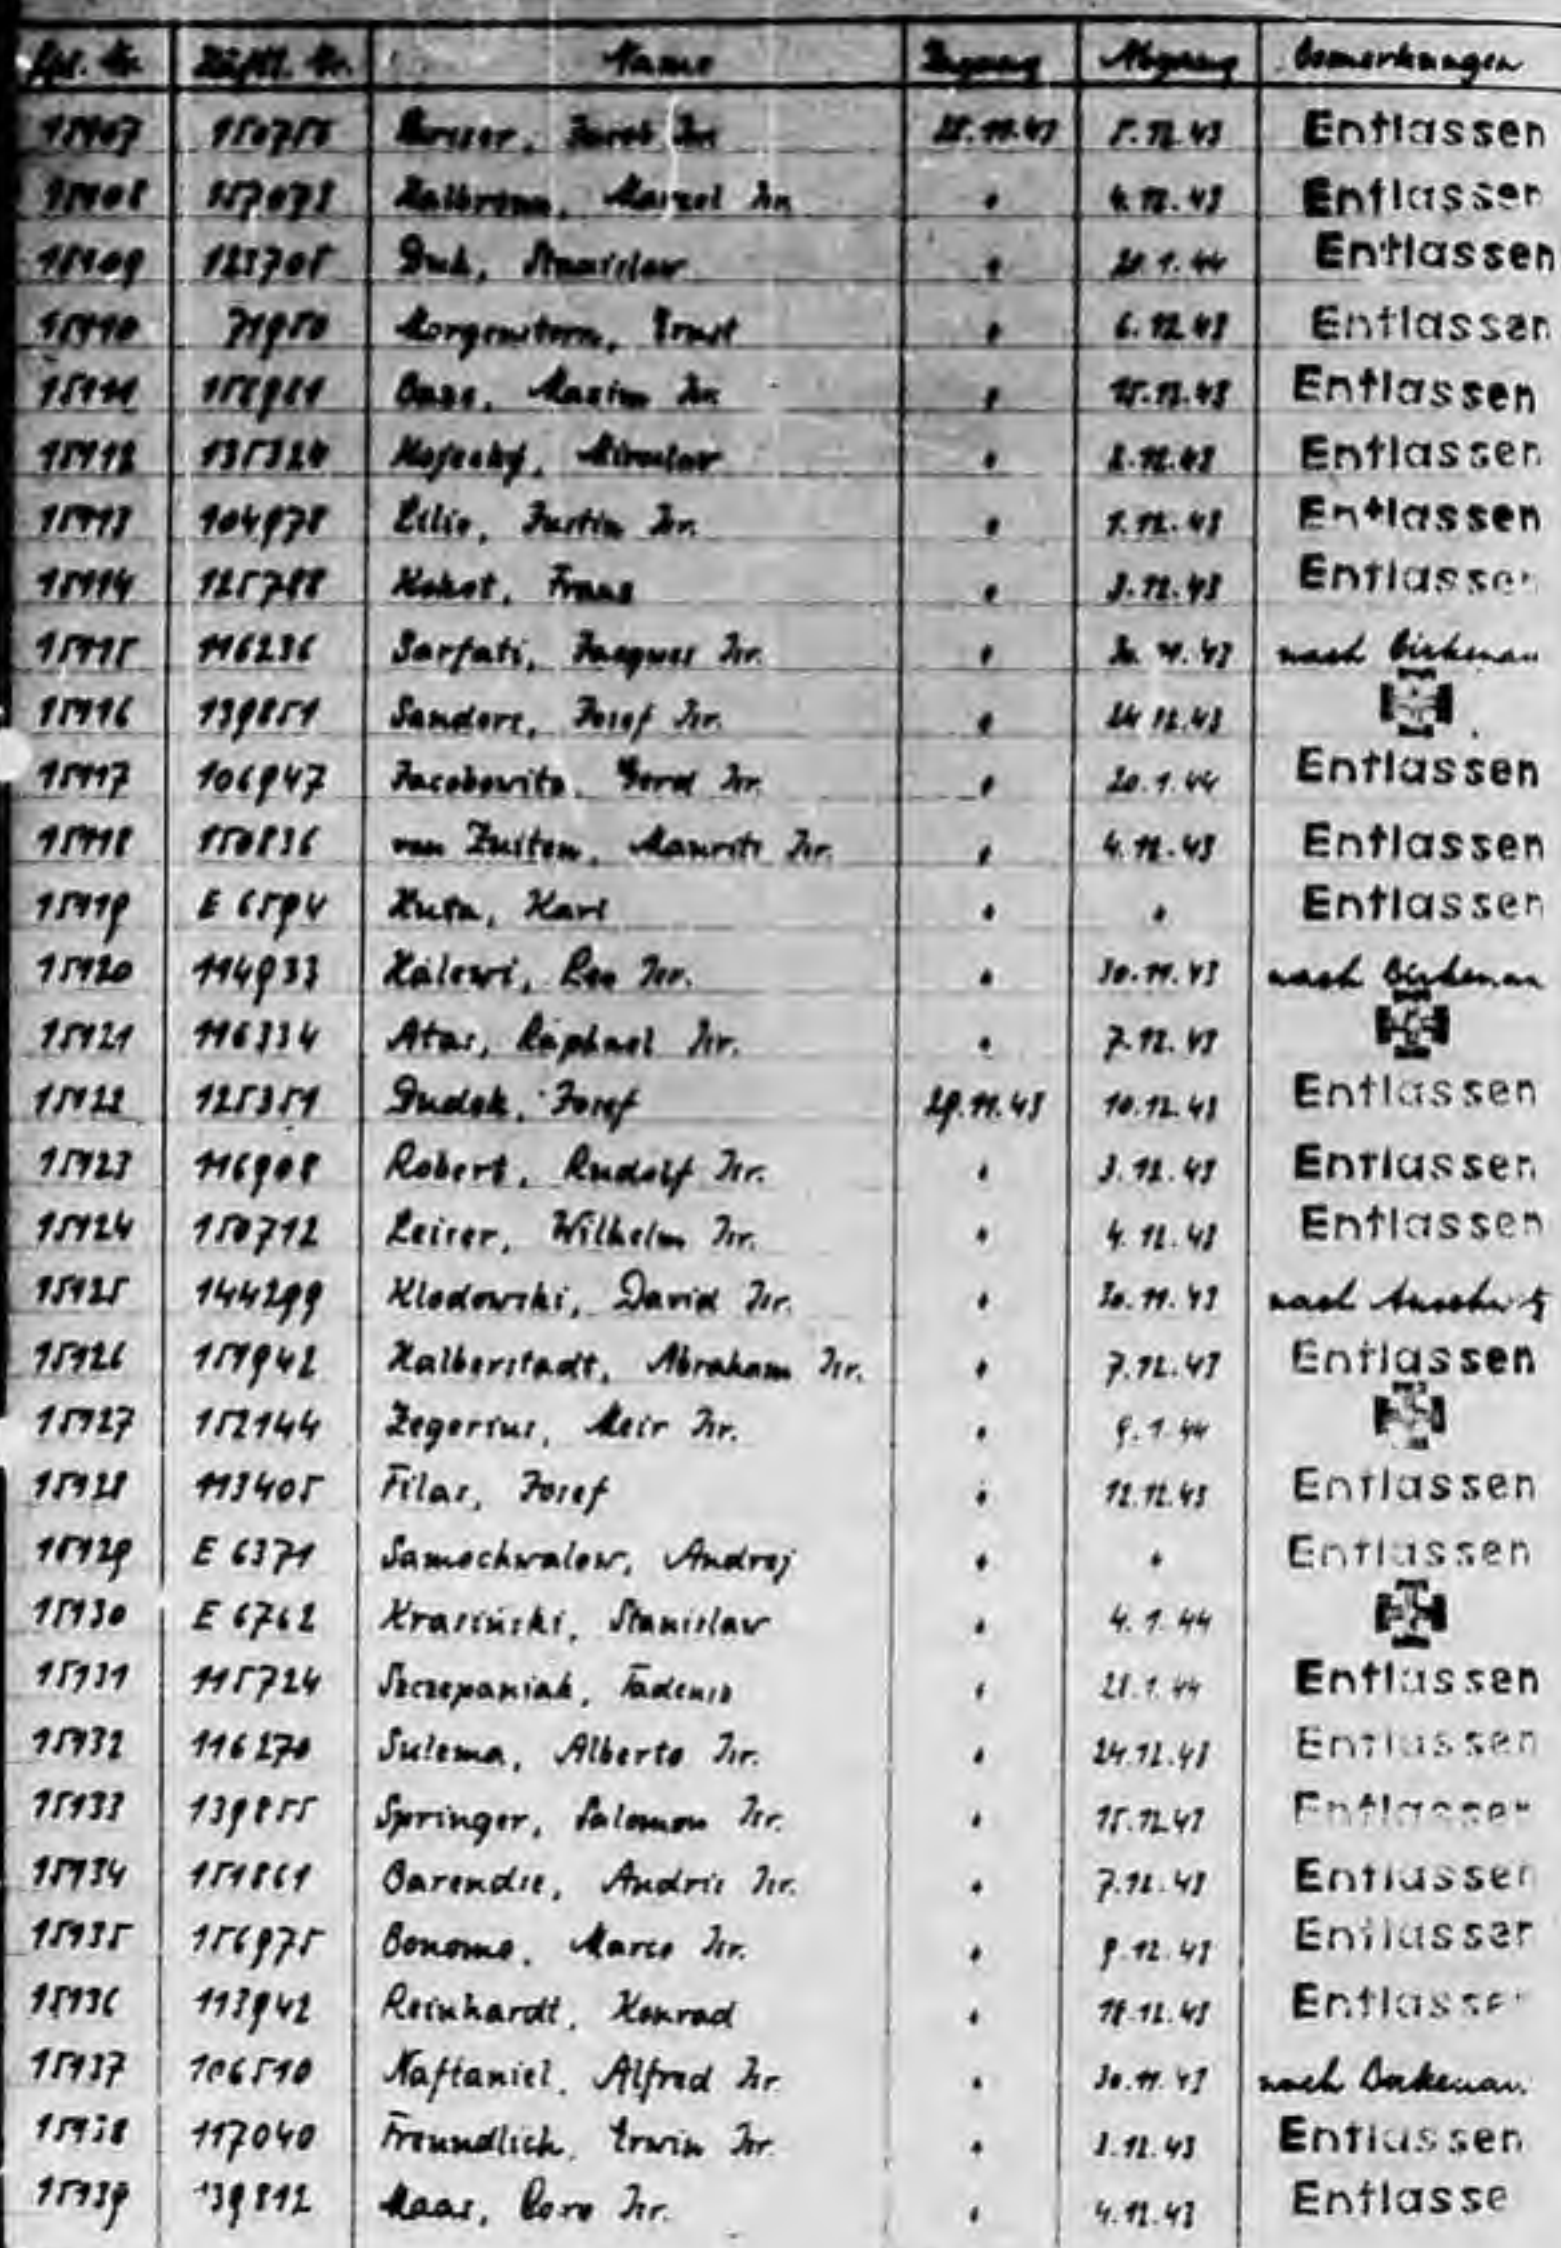 Lfd. Nr. Häftl. Nr. Name Zugang Abgang Bemerkungen
15907 150750 28.11.43 5.12.43 Entlassen
15908 157073 Halbronn, Marzel Isr. " 4.12.43 Entlassen
15909 123705 Duk, Stanislaw " 28.1.44 Entlassen
15910 71950 Morgenstern, Ernst " 6.12.43 Entlassen
15911 Maxim Isr. " 15.12.43 Entlassen
15912 135324 Miroslav " 2.12.43 Entlassen
15913 104978 Lilie, Justin Isr. " 1.12.43 Entlassen
15914 125788 Kokot, Franz " 3.12.43 Entlassen
15915 116236 Sarfati, Jacques Isr. " 30.11.43 nach Birkenau
15916 139851 Sanders, Josef Isr. " 24.12.43
15917 106947 Jacobowitz, Gerd Isr. " 20.1.44 Entlassen
15918 150836 van Zuiten, Maurits Isr. " 4.12.43 Entlassen
15919 E 6594 Huta, Karl " " Entlassen
15920 114933 Halewi, Leo Isr. " 30.11.43 nach Birkenau
15921 116334 Atas, Raphael Isr. " 7.12.43
15922 125351 Dudek, Josef 29.11.43 10.12.43 Entlassen
15923 116908 Robert, Rudolf Isr. " 3.12.43 Entlassen
15924 150712 Leiser, Wilhelm Isr. " 4.12.43 Entlassen
15925 144299 Klodowski, David Isr. " 30.11.43 nach Auschwitz
15926 151942 Halberstadt, Abraham Isr. " 7.12.43 Entlassen
15927 152144 Zegerius, Meir Isr. " 9.1.44
15928 113405 Filas, Josef " 12.12.43 Entlassen
15929 E 6371 Samochwalow, Andrej " " Entlassen
15930 E 6762 Krasiński, Stanislaw " 4.1.44
15931 115724 Szczepaniak, Tadeusz " 28.1.44 Entlassen
15932 116270 Sulema, Alberto Isr. " 24.12.43 Entlassen
15933 139855 Springer, Salomon Isr. " 15.12.43 Entlassen
15934 151861 Barendse, Andris Isr. " 7.12.43 Entlassen
15935 156975 Bonomo, Marco Isr. " 9.12.43 Entlassen
15936 113942 Reinhardt, Konrad " 18.12.43 Entlassen
15937 106510 Naftaniel, Alfred Isr. " 30.11.43 nach Birkenau
15938 117040 Freundlich, Erwin Isr. " 3.12.43 Entlassen
15939 139812 Maas, Isr. " 4.12.43 Entlasse